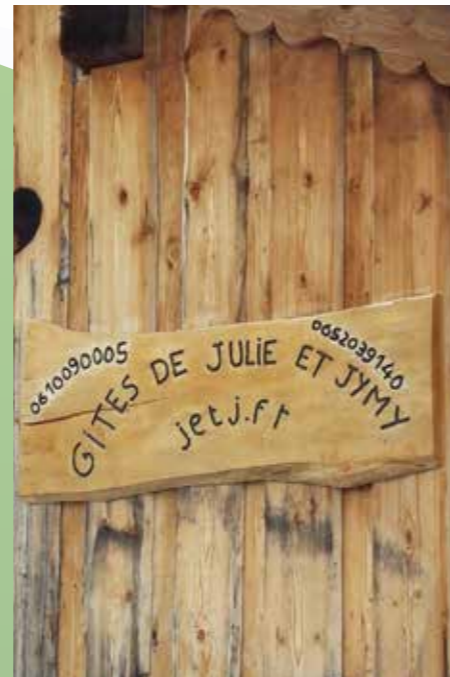 0610090005
0652039140
GITES DE JULIE ET JYMY
jetj.fr